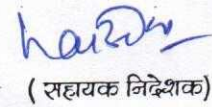 ( सहायक निदेशक)